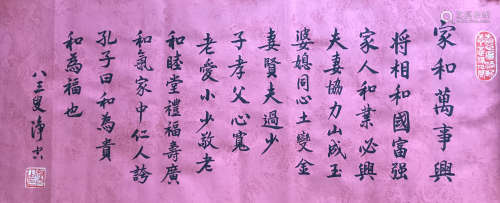 家和萬事興
將相和國富强
家人和業必興
夫妻協力山成玉
婆媳同心土變金
妻賢夫過少
子孝父心寬
老愛小少敬老
和睦堂禮福壽廣
和氣家中仁人誇
孔子曰和為貴
和為福也
八三叟净空